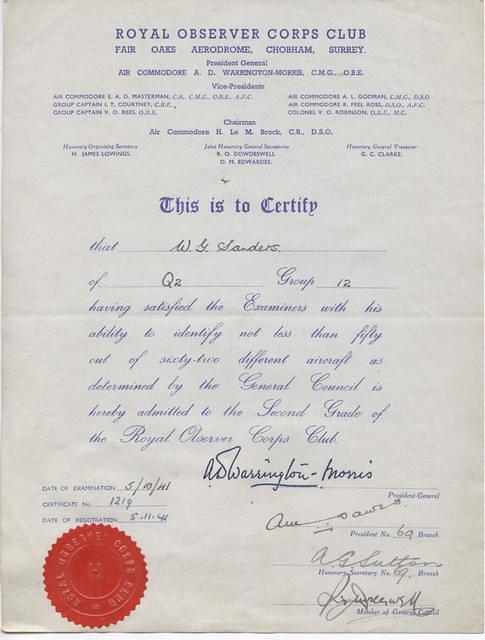 ROYAL OBSERVER CORPS CLUB
FAIR OAKS AERODROME, CHOBHAM, SURREY.
President General
AIR COMMODORE A. D. WARRINGTON-MORRIS, C.M.G., O.B.E.
Vice-Presidents
AIR COMMODORE E. A. D. MASTERMAN, C.B., C.M.G., O.B.E., A.F.C. AIR COMMODORE A. L. GODMAN, C.M.G., D.S.O
GROUP CAPTAIN I. T. COURTNEY, C.B.E., AIR COMMODORE R. PEEL ROSS, D.S.O., A.F.C.
GROUP CAPTAIN V. O. REES, O.B.E. COLONEL V. O. ROBINSON, O.B.E., M.C.
Chairman
Air Commodore H. Le M. Brock, C.B., D.S.O.
Honorary Organising Secretary Joint Honorary General Secretaries Honorary General Treasurer
H. JAMES LOWINGS. R. O. DOWDESWELL G. C. CLARKE.
D. M. EDWARDES.
This is to Certify
that W. G. Sanders.
of Q2 Group 12
having satisfied the Examiners with his
ability to identify not less than fifty
out of sixty-two different aircraft as
determined by the General Council is
hereby admitted to the Second Grade of
the Royal Observer Corps Club.
A D Warrington-Morris
President-General
DATE OF EXAMINATION 5/10/41
CERTIFICATE No. 1219
DATE OF REGISTRATION 5.11.41
President No. 69 Branch
A. G. Sutton
Honorary Secretary No. 69. Branch
Member of General Council
ROYAL OBSERVER CORPS CLUB